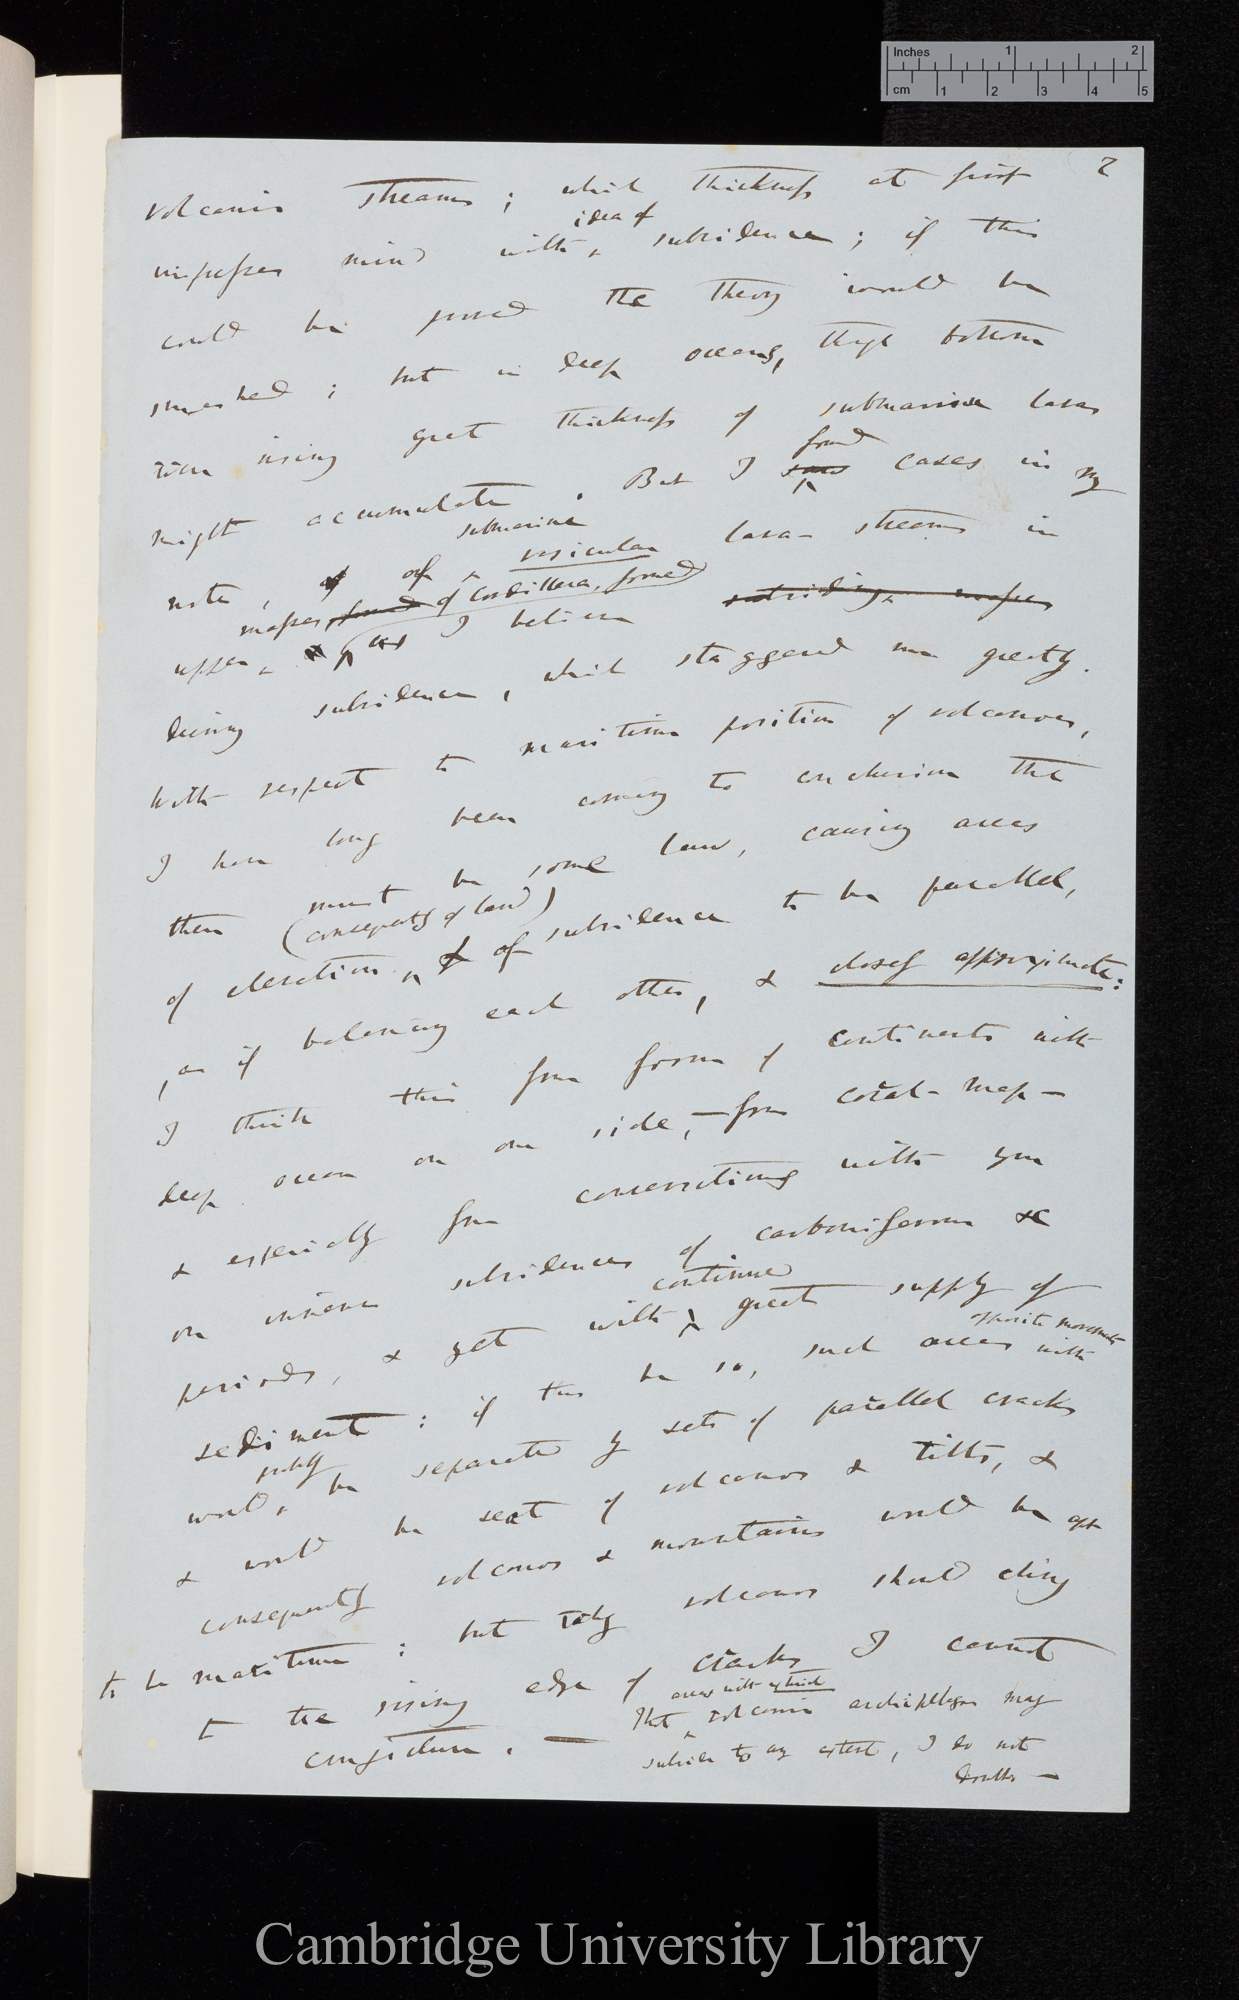 2
volcanic streams; which thickness at first
impresses mind with idea of subsidence; if this
could be proved the theory would be
smashed; but in deep oceans, though bottom
were rising great thickness of submarine lavas
might accumulate. But I found cases in my
notes, of submarine vesicular lava-streams in
upper masses of Cordillera, formed as I believe
during subsidence, which staggered me greatly.
With respect to maritime position of volcanoes,
I have long been coming to conclusion that
there must be some law, causing areas
of elevation (consequently of land) & of subsidence to be parallel,
, as if balancing each other, & closely approximate:
I think this from form of continents with
deep ocean on one side,—from coral-map—
& especially from conversations with you
on immense subsidences of carboniferous &c
periods, & yet with continued great supply of
sediment: if this be so, such areas with opposite movements
would probably be separated by sets of parallel cracks
& would be seat of volcanos & tilts, &
consequently volcanos & mountains would be apt
to be maritime: but why volcanos should cling
to the rising edge of cracks I cannot
conjecture. — That areas with which volcanic archipelagos may
subside to any extent, I do not
doubt —
Inches 1 2
cm 1 2 3 4 5
Cambridge University Library